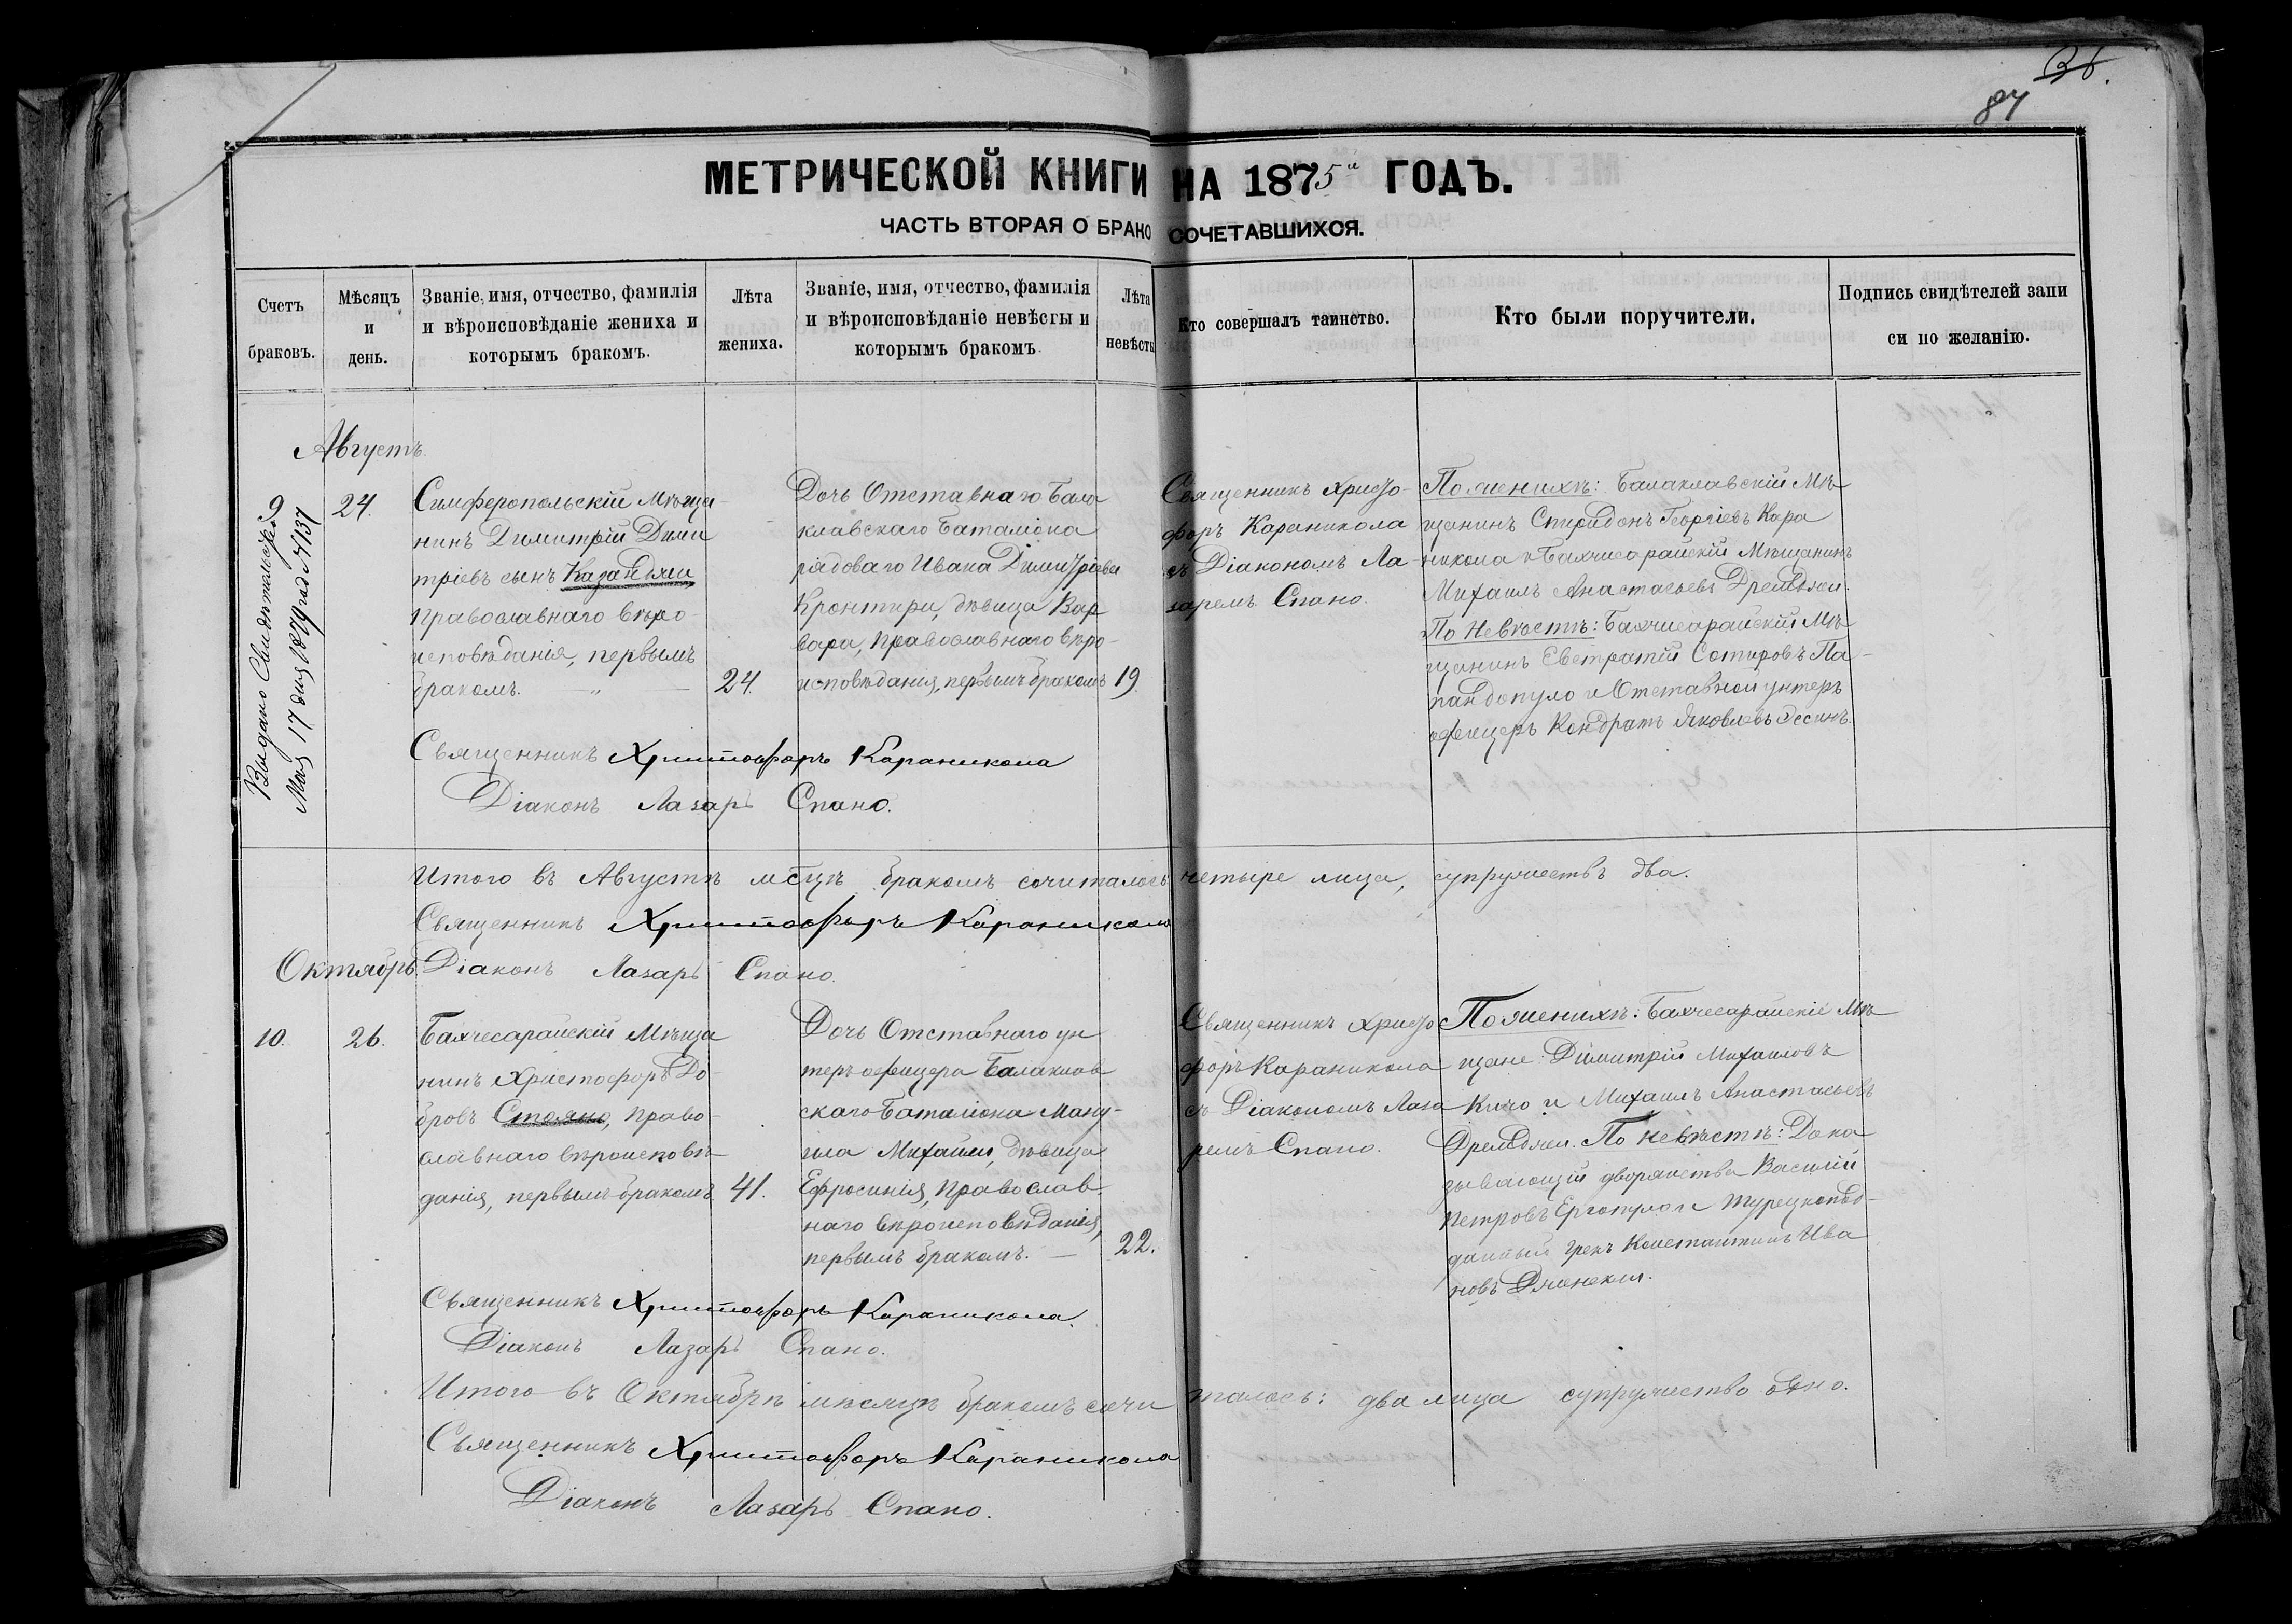 36.
87
МЕТРИЧЕСКОЙ КНИГИ НА 1875й ГОДЪ.
ЧАСТЬ ВТОРАЯ О БРАКОСОЧЕТАВШИХСЯ.
Счетъ
браковъ.
Мѣсяцъ
и
день.
Званіе, имя, отчество, фамилія
и вѣроисповѣданіе жениха и
которымъ бракомъ.
Лѣта
жениха.
Званіе, имя, отчество, фамилія
и вѣроисповѣданіе невѣсты и
которымъ бракомъ.
Лѣта
невѣсты
Кто совершалъ таинство.
Кто были поручители.
Подпись свидѣтелей запи
си по желанію.
Августъ.
9
Выдано Свидѣтельство
Мая 17 дня 1879 года №137
24.
Симферопольскій Мѣща-
нинъ Димитрій Дими
тріевъ сынъ Казанджи
православнаго вѣро-
исповѣданія, первымъ
бракомъ. — „ —
24.
Дочь Отставнаго Бала
клавскаго баталіона
рядоваго Ивана Димитріева
Кронтири, дѣвица Вар
вара, православнаго вѣро-
исповѣданія, первымъ бракомъ
19.
Священникъ Христо-
форъ Караникола
съ Діакономъ Ла
заремъ Спано.
По женихѣ: Балаклавскій Мѣ
щанинъ Спиридонъ Георгіевъ Кара
никола и Бахчисарайскій Мѣщанинъ
Михаилъ Анастасьевъ Дремджи.
По Невѣстѣ: Бахчисарайскій Мѣ
щанинъ Евстратій Сотировъ Па-
пандопуло и Отставной унтеръ
офицеръ Кондратъ Яковлевъ
Священникъ Христофоръ Караникола
Діаконъ Лазарь Спано.
Итого въ Августѣ мсцѣ бракомъ сочиталось четыре лица, супружествъ два.
Священникъ Христофоръ Караникола
Октябрь.
Діаконъ Лазарь Спано.
10.
26.
Бахчесарайскій Мѣща
нинъ Христофоръ До-
бровъ Стояно, право-
славнаго вѣроисповѣ-
данія, первымъ бракомъ
41.
Дочь Отставнаго ун
теръ офицера Балаклав
скаго БаталіонаМану-
ила Михаили, дѣвица
Ефросинія, Православ-
наго вѣроисповѣданія,
первымъ бракомъ. —
22.
Священникъ Христо
форъ Караникола
съ Діакономъ Лаза
ремъ Спано.
По женихѣ: Бахчесарайскіе Мѣ
щане: Димитрій Михаиловъ
Кичо и Михаилъ Анастасьевъ
Дремджи. По невѣстѣ: Дока
зывающій дворянства Василій
Петровъ и Турецкопод-
данный грекъ Константинъ Ива
новъ
Священникъ Христофоръ Караникола.
Діаконъ Лазарь Спано.
Итого въ Октябрѣ мѣсяцѣ бракомъ сочиталось: два лица супружество одно.
Священникъ Христофоръ Караникола
Діаконъ Лазарь Спано.